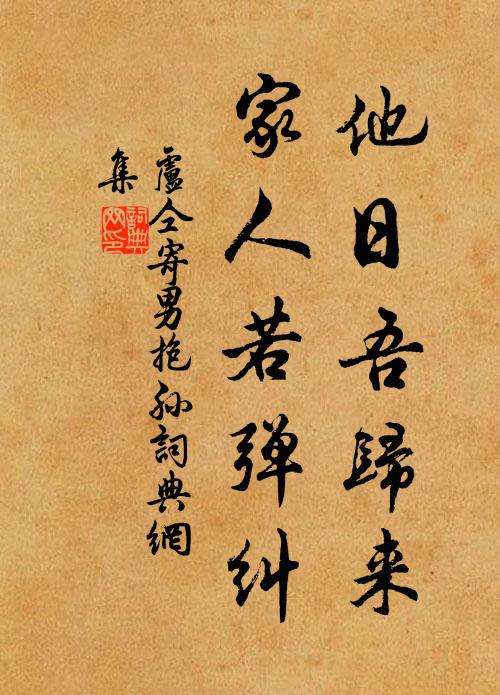 他日吾歸来
家人若弾糾
盧仝寄男抱孙詞典網
集
詞典網印